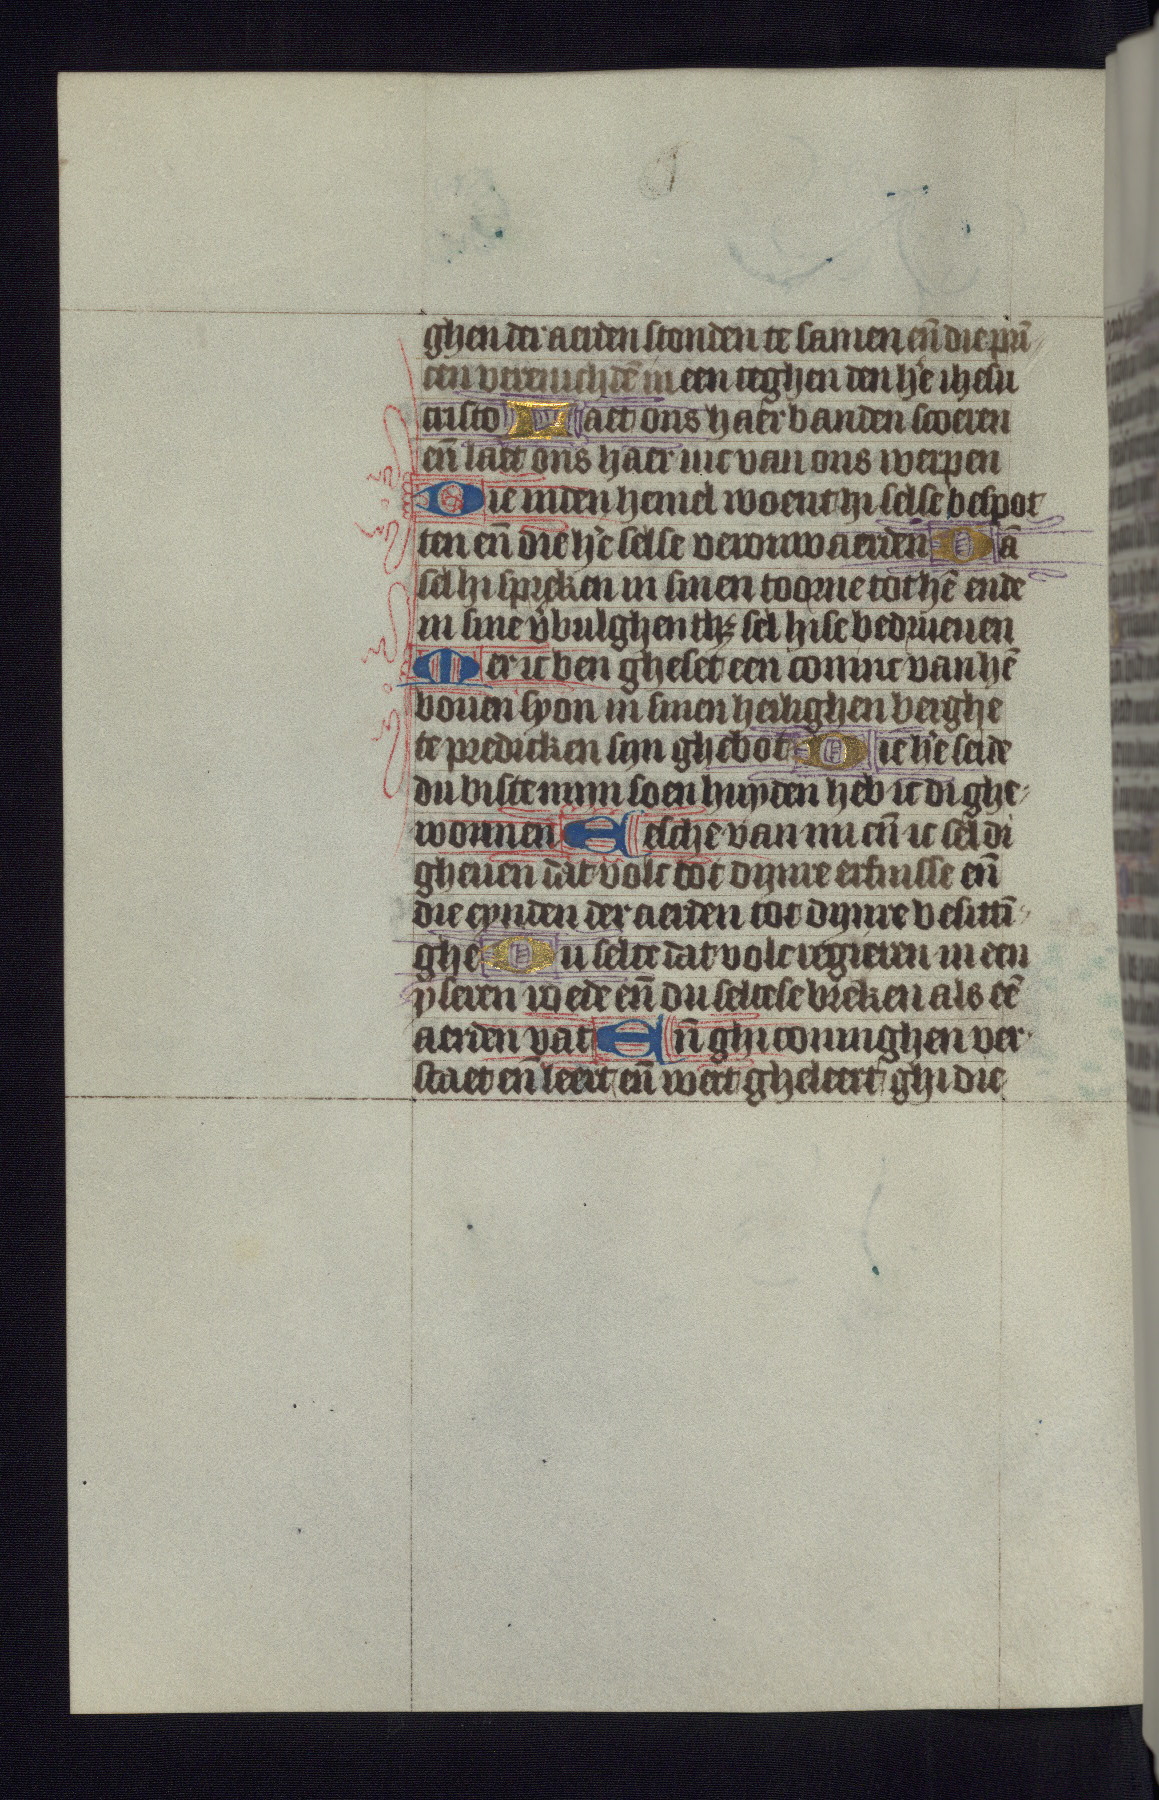 ghen der aerden stonden te samen en̄ die prī
cen vereenichdē in een teghen den he ihesu
cristo Laet ons haer banden scoeren
en̄ laet ons haer iuc van ons werpen
Die inden hemel woent hi selse bespot
ten en̄ die he selse veronwaerden Dā
sel hi spreken in sinen toorne tot hē ende
in sine v̄bulghentheȝ sel hise bedrueuen
Mer ic ben gheset een coninc van hē
bouen syon in sinen heilighen berghe
te predicken sijn ghebot Die he seide
du biste mijn soen huyden heb ic di ghe
wonnen Eesche van mi en̄ ic sel di
gheuen dat volc tot dijnre erfnisse en̄
die eynden der aerden tot dijnre besittī
ghe Du selte dat volc regieren in een
yseren roede en̄ du seltese breken als eē
aerden vat En̄ ghi coninghen ver
staet en̄ leert en̄ wert gheleert ghi die